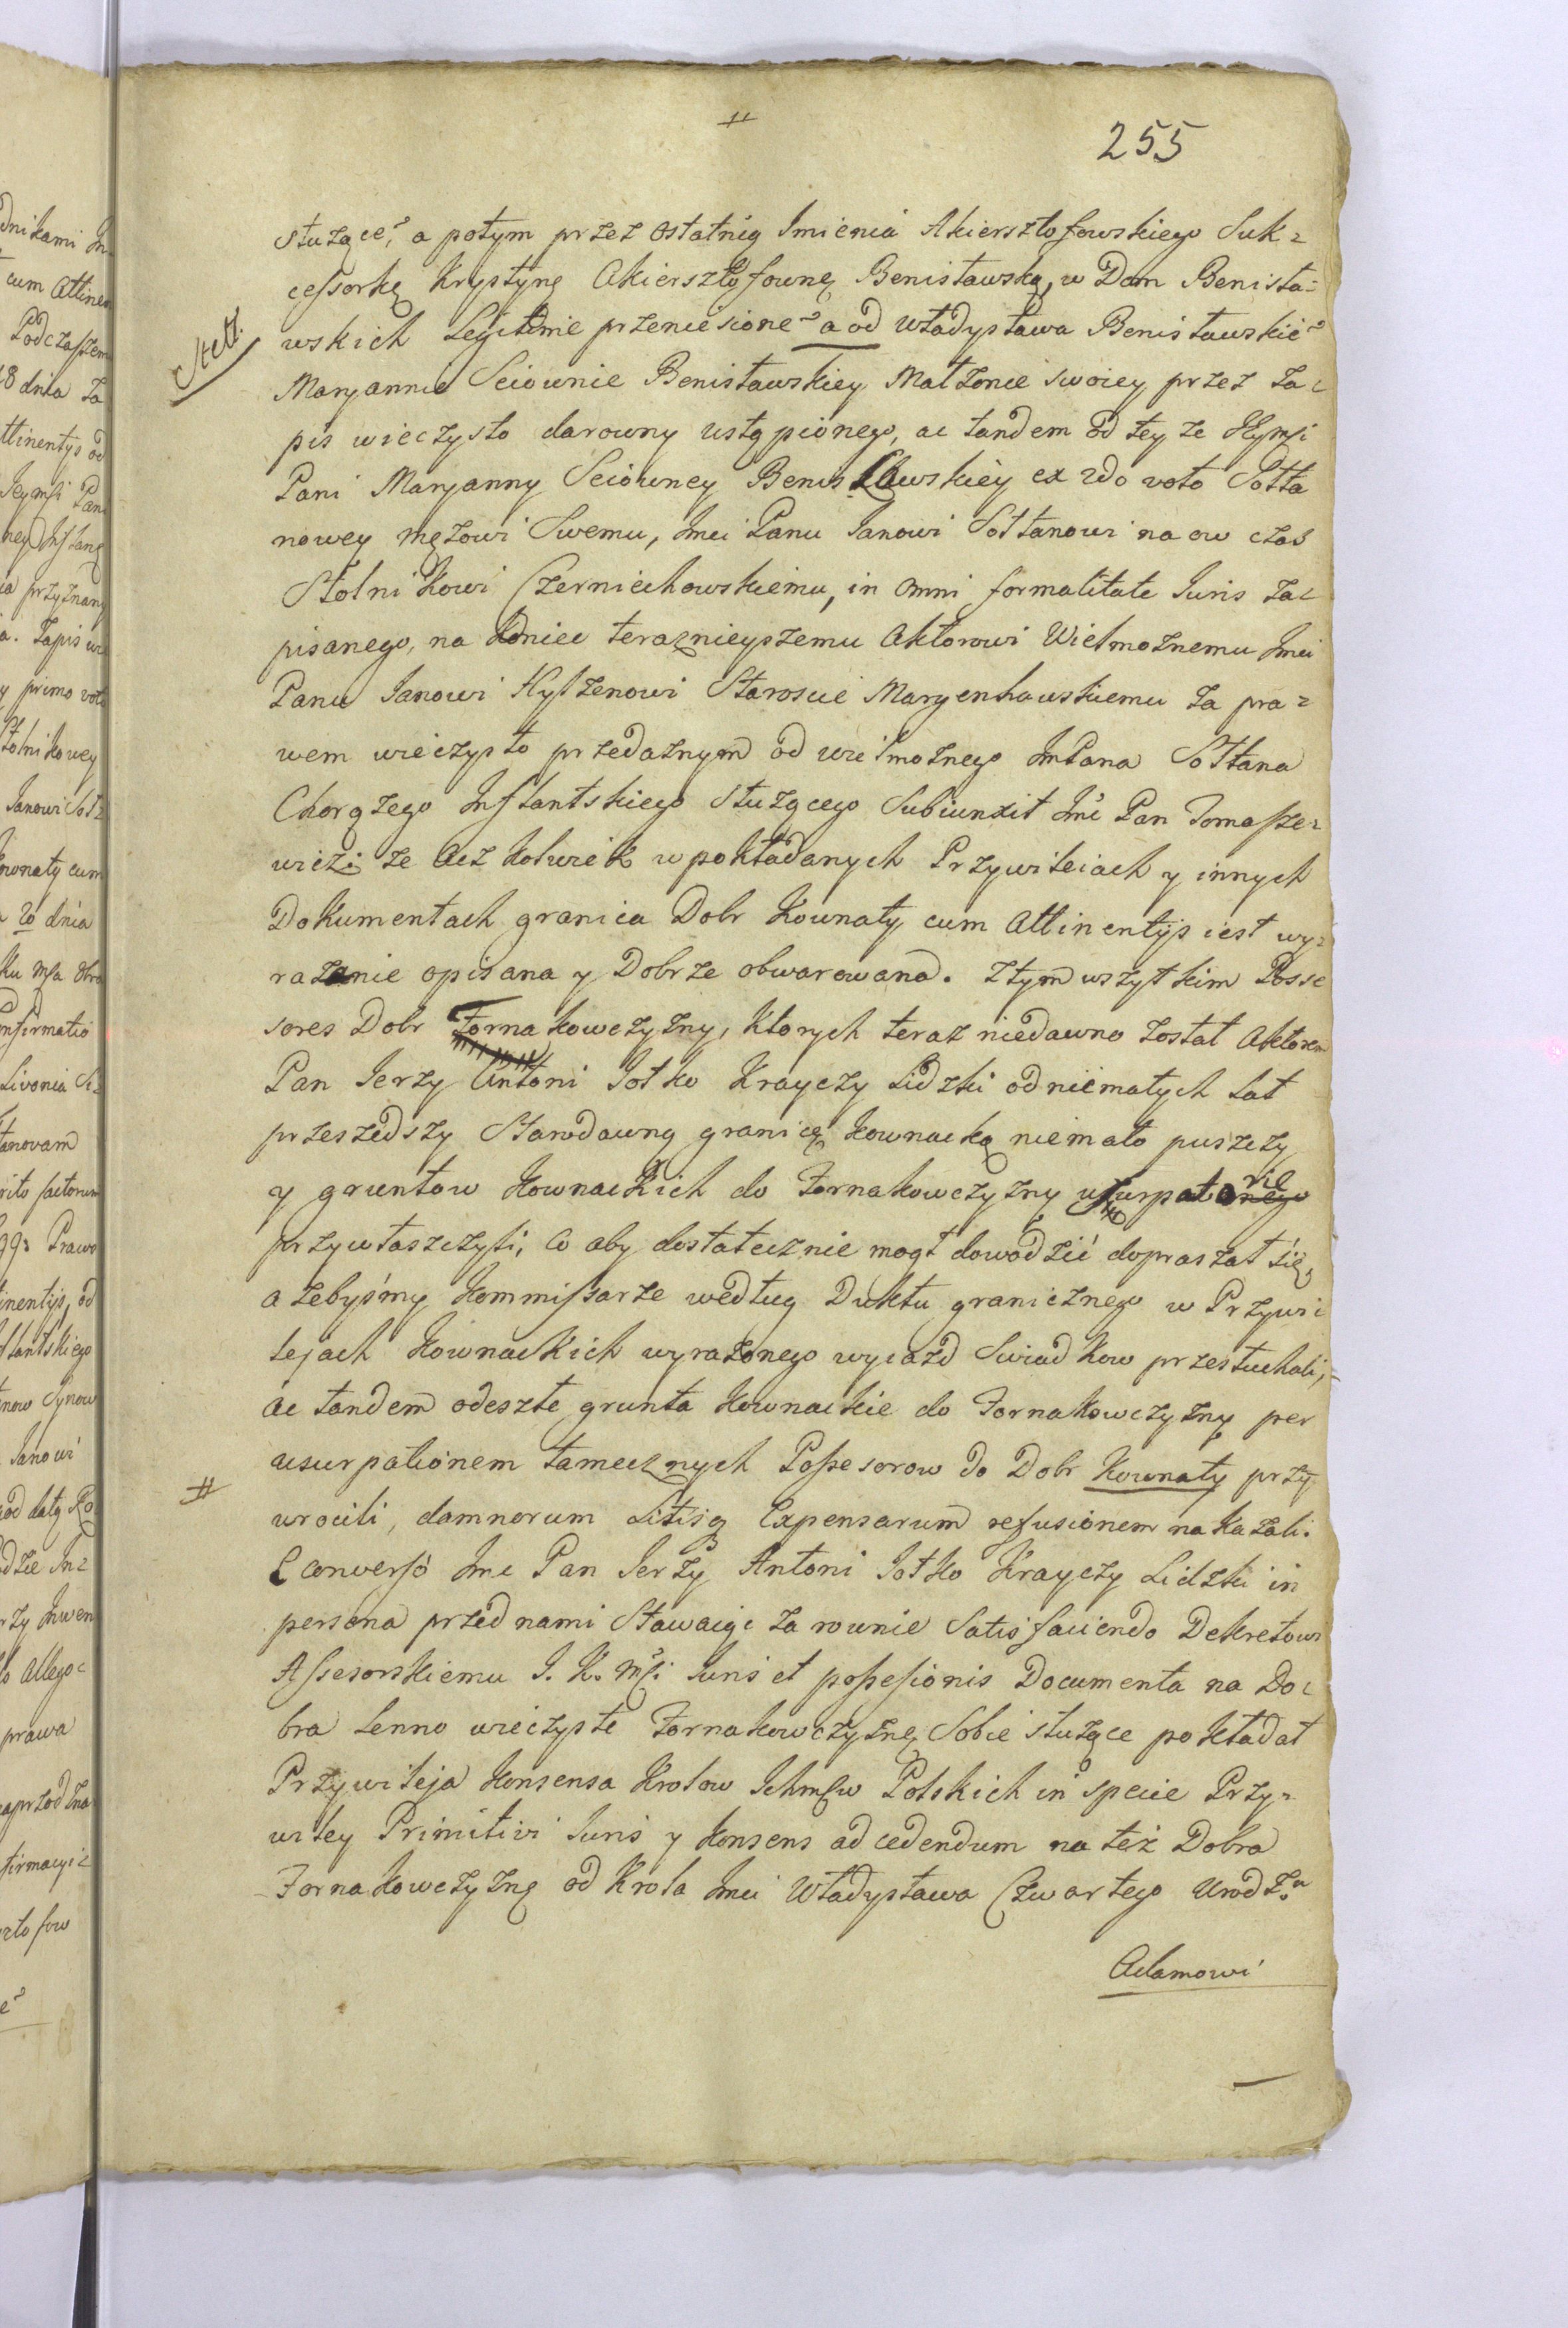 255
służące, a potym przez ostatnią Imienia Akiersztofowskiego Suk=
cessorkę Krystynę Akiersztofownę Benisławską, w Dom Benisła=
wskich Legitimie przeniesione a od Władysława Benisławskie
Maryannie Sciownie Benisławskiey Małżonce swoiey przez za=
pis wieczysto darowny ustąpionego, ac tandem od tey ze
Pani Maryanny Sciowney Benisławskiey ex 2do voto Sołta
nowey mężowi Swemu, Jmci Panu Janowi Sołtanowi na ow czas
Stolnikowi Czerniechowskiemu, in omni formalitate Juris za=
pisanego, na koniec teraznieyszemu Aktorowi Wielmożnemu Jmci
Panu Janowi Hylzenowi Staroscie Maryenhauskiemu za pra=
wem wieczysto przedażnym od wielmożnego JmPana Sołtana
Chorążego Inflantskiego służącego Subiunxit Jmć Pan Tomasze=
wicz: że acz kolwiek w pokładanych Przywileiach y innych
Dokumentach granica Dobr Kownaty cum Attinentijs iest wy=
rażenie opisana y Dobrze obwarowana. Z tym wszytkim Posse
sores Dobr Fornakowczyzny, Ktorych teraz niedawno został Aktorem
Pan Jerzy Antoni Jotko Krayczy Lidzki od niemałych Lat
przeszedszy Starodawną granicę Kownacką niemało puszczy
y gruntow Kownackich do Fornakowczyzny
przywłaszczyli, Co aby dostatecznie mogł dowodzić dopraszał się,
a żebyśmy Kommissarze według Duktu granicznego w Przywi
lejach Kownackich wyrażonego wyiazd Swiadkow przesłuchali,
ac tandem odeszłe grunta Kownackie do Fornakowczyzny per
usurpationem tamecznych Possesorow do Dobr Kownaty przy
wrocili, damnorum Litisq Expensarum refusionem nakazali.
E converso Jmc Pan Jerzy Antoni Jotko Krayczy Lidzki in
persona przed nami Stawaiąc za rownie Satisfaciendo Dekretowi
Assesorskiemu J. K. Mści Juris et possesionis Documenta na Do=
bra Lenno wieczyste Fornakowczyznę Sobie służące pokładał
Przywileja Konsensa Krolow Ichmsw Polskich in specie Przy=
wiley Primitivi Juris y Konsens ad cedendum na też Dobra
Fornakowczyznę od Krola Jmci Władysława Czwartego Urodz.
Adamowi